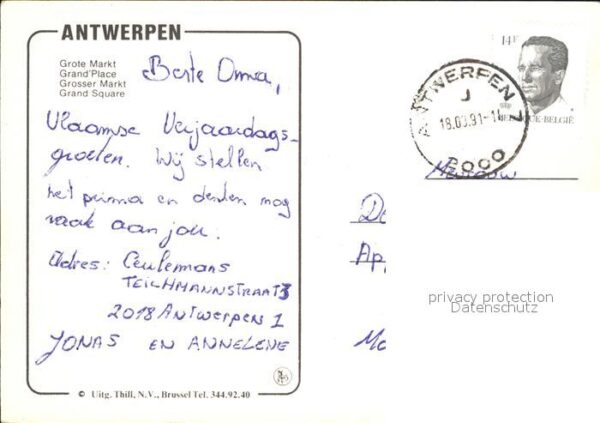 ANTWERPEN
Grote Markt
Grand'Place
Grosser Markt
Grand Square
Beste Oma,
Vlaamse Verjaardags-
groeten. Wij stellen
het prima en denken nog
vaak aan jou.
Adres: Ceulemans
TEICHMANNSTRAAT 3
2018 Antwerpen 1
JONAS EN ANNELENE
© Uitg. Thill, N.V., Brussel Tel. 344.92.40
14F
BELGIQUE-BELGIË
ANTWERPEN
J
2000
Mevrouw
privacy protection
Datenschutz